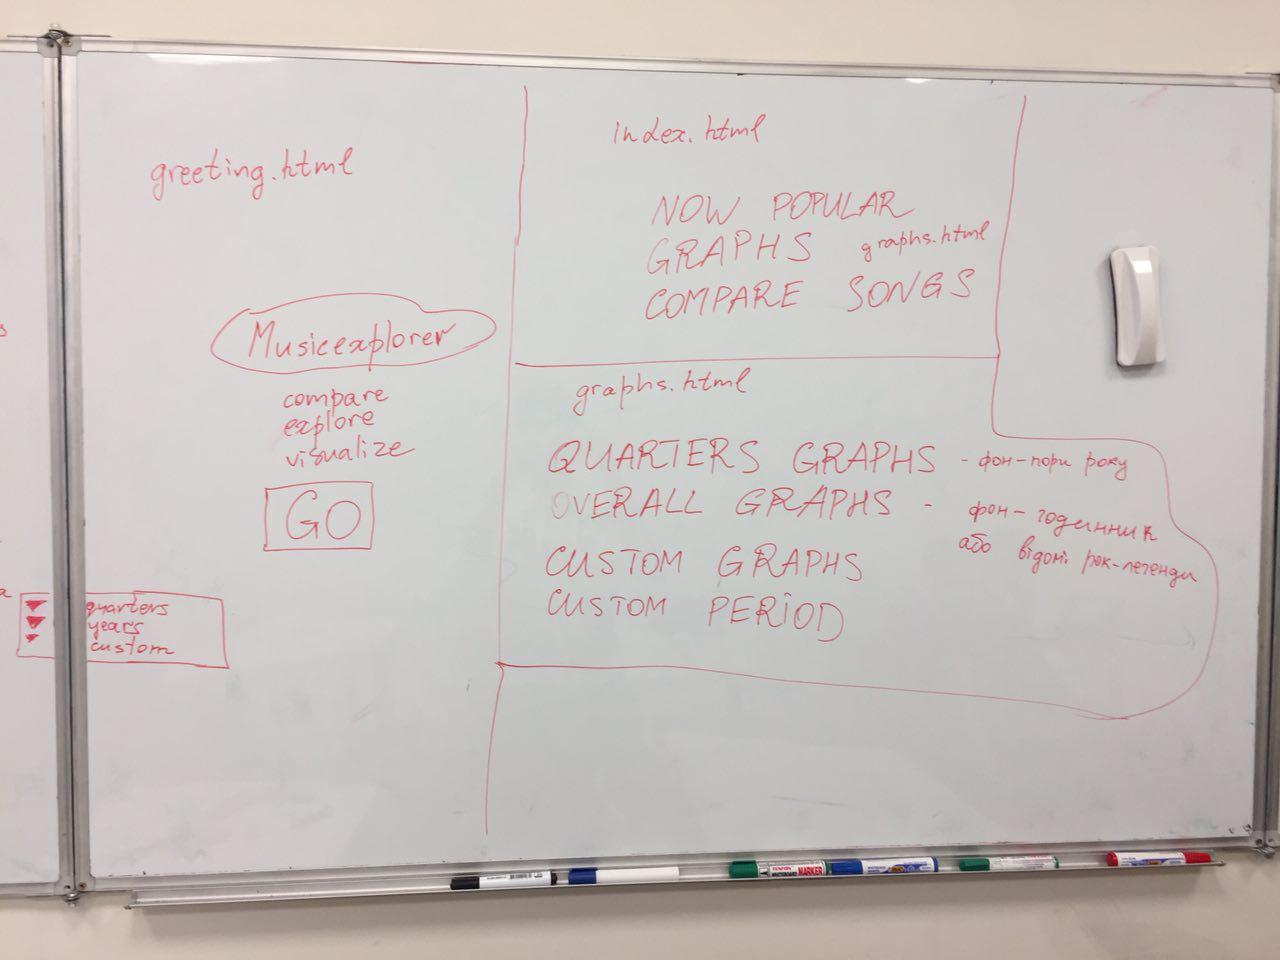 greeting.html
Musicexplorer
compare
explore
visualize
GO
quarters
years
custom
index.html
NOW POPULAR
GRAPHS graphs.html
COMPARE SONGS
graphs.html
QUARTERS GRAPHS - фон-пори року
OVERALL GRAPHS - фон-годинник
або відомі рок-легенди
CUSTOM GRAPHS
CUSTOM PERIOD
MARKER